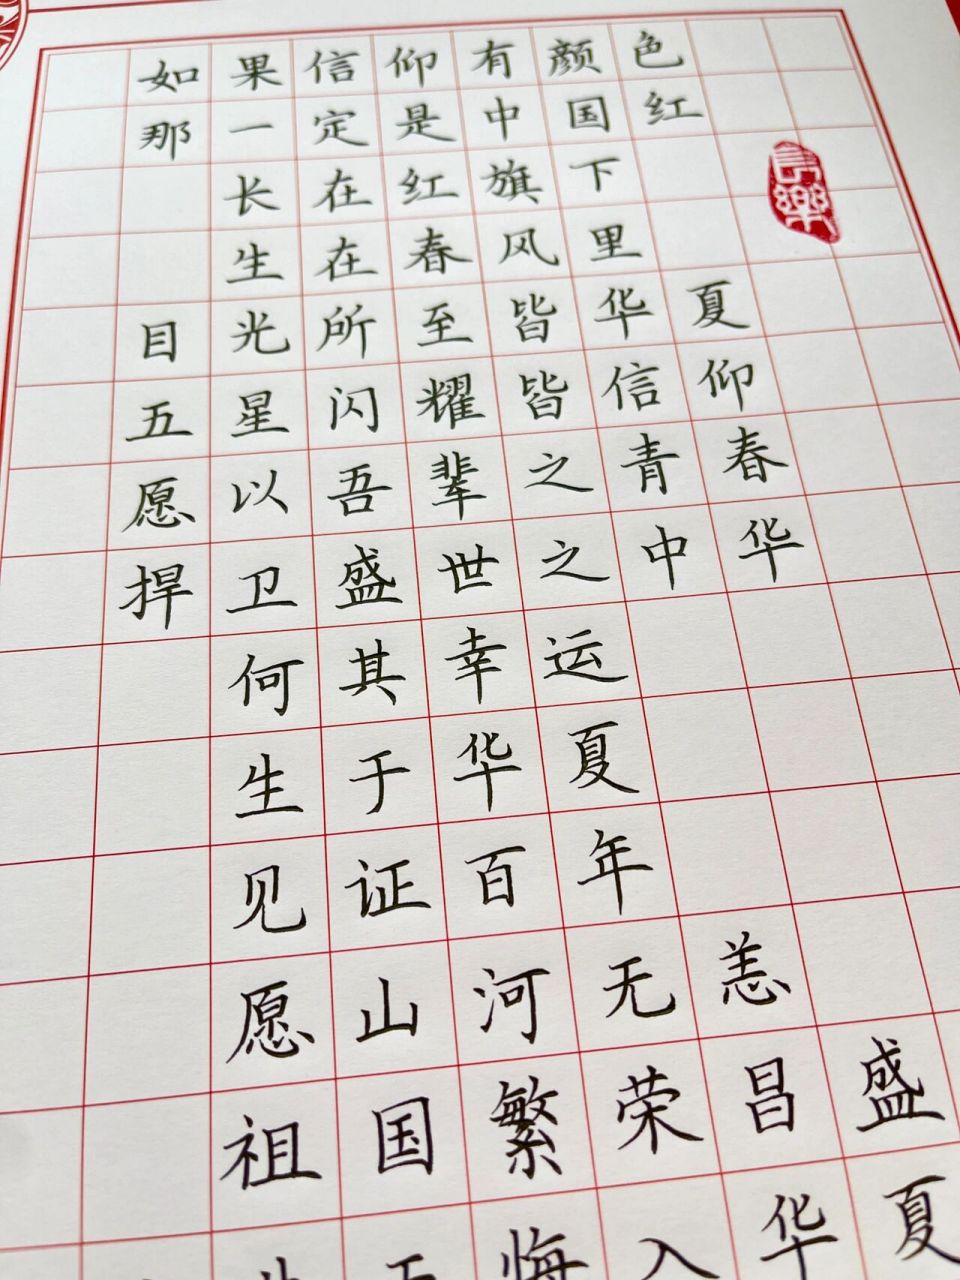 如果信仰有颜色
那一定是中国红
长在红旗下
生在春风里
目光所至皆华夏
五星闪耀皆信仰
愿以吾辈之青春
捍卫盛世之中华
何其幸运
生于华夏
见证百年
愿山河无恙
祖国繁荣昌盛
悔入华夏
長樂